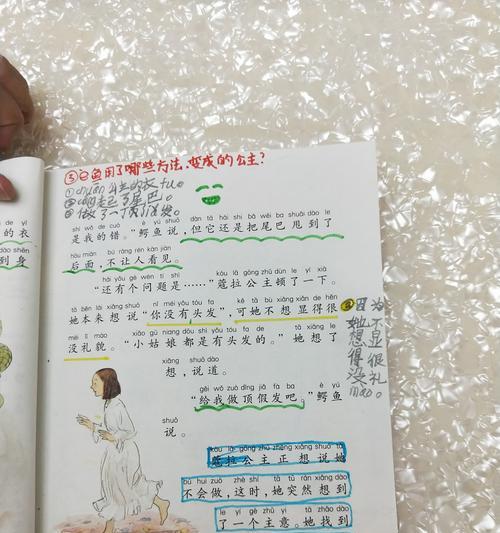 鱼用了哪些方法,变成的公主?
①chuān上的衣fu。
②起了尾巴。
③做了一顶假发。
de yī
的衣
dào shēn
到身
shì wǒ de cuò è yú shuō dàn tā hái shi bǎ wěi ba shuǎi dào le
是我的错。”鳄鱼说,但它还是把尾巴甩到了
hòu miàn bù ràng rén kàn jiàn
后面,不让人看见。
hái yǒu gè wèn tí shì kòu lā gōng zhǔ dùn le yí xià
“还有个问题是……”蔻拉公主顿了一下。
tā běn lái xiǎng shuō nǐ méi yǒu tóu fa kě tā bù xiǎng xiǎn de hěn
她本来想说“你没有头发”,可她不想显得很
méi lǐ mào xiǎo gū niang dōu shì yǒu tóu fa de tā xiǎng le
没礼貌。“小姑娘都是有头发的。”她想了
xiǎng shuō dào
想,说道。
gěi wǒ zuò dǐng jiǎ fà ba è yú
“给我做顶假发吧。”鳄鱼
shuō
说。
kòu lā gōng zhǔ zhèng xiǎng shuō tā
蔻拉公主正想说她
bú huì zuò zhè shí tā tū rán xiǎng dào
不会做,这时,她突然想到
le yí gè zhǔ yi tā zhǎo dào
了一个主意。她找到
因为
她不
想显
得很
没礼
mào。